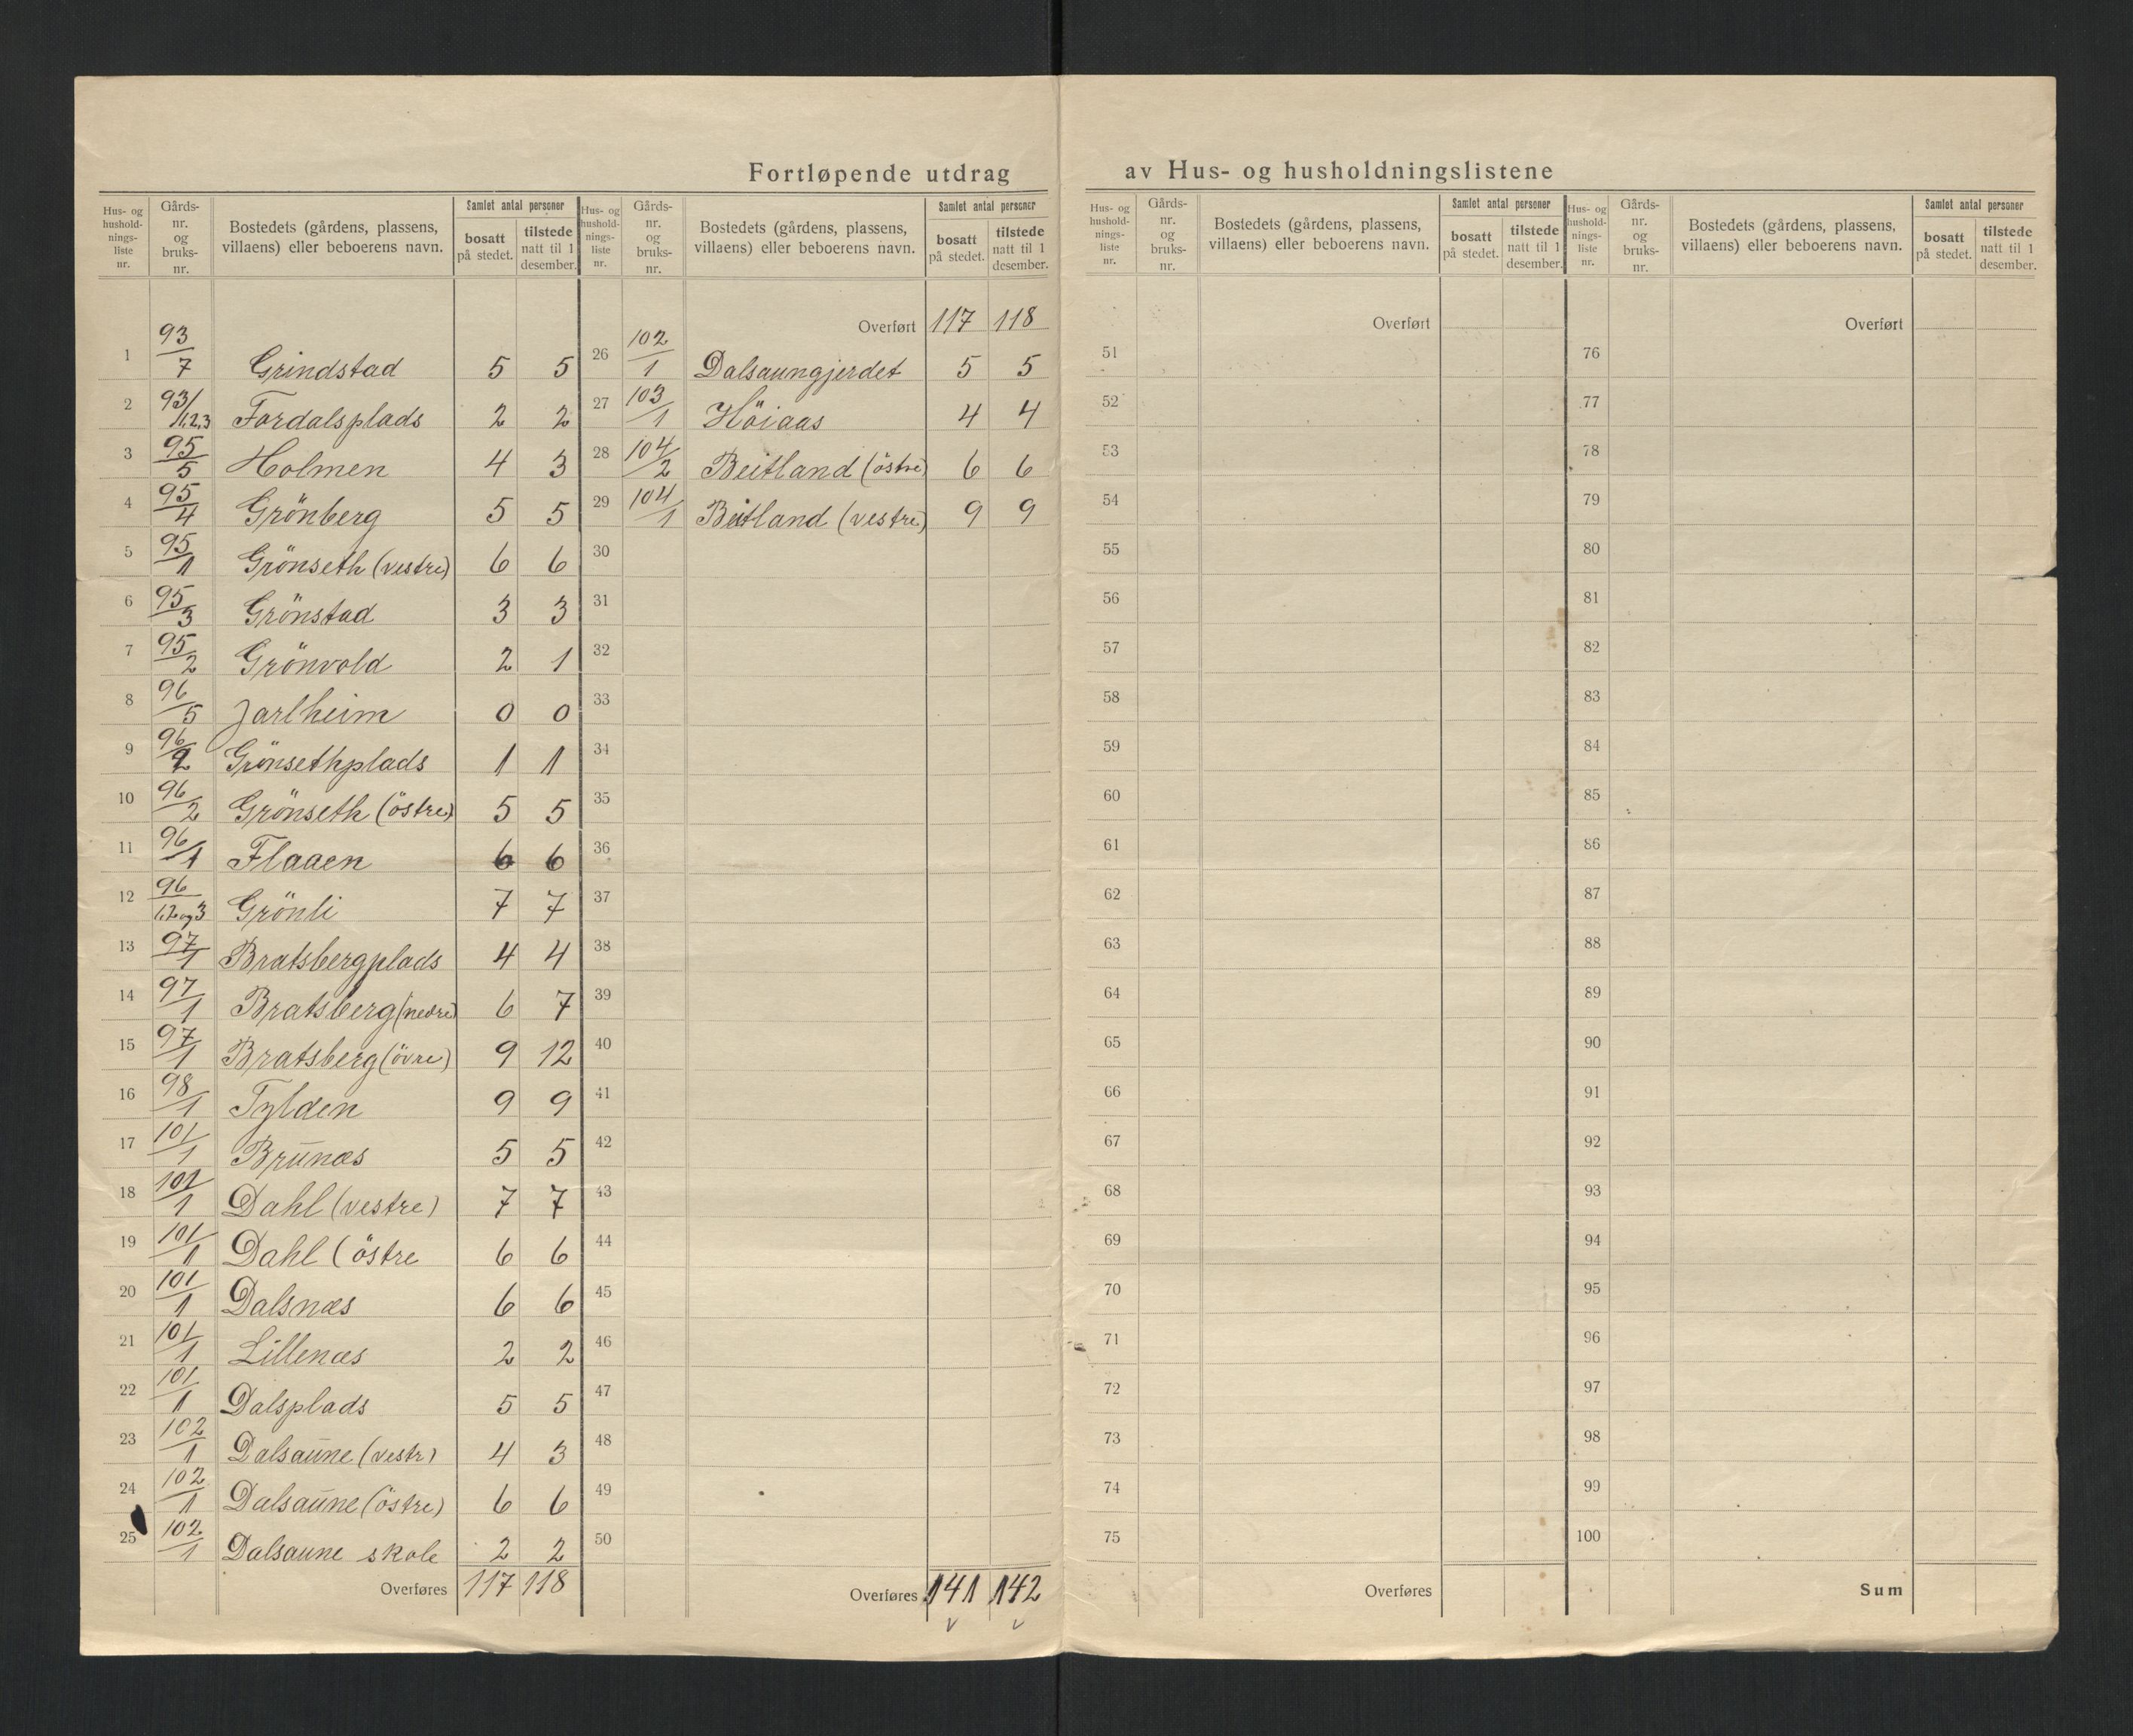 Fortløpende utdrag av Hus- og husholdningslistene
Hus- og hushold- nings- liste nr. Gårds- nr. og bruks- nr. Bostedets (gårdens, plassens, villaens) eller beboerens navn. Samlet antal personer bosatt på stedet. tilstede natt til 1 desember.
1 93/7 Grindstad 5 5
2 93/1,2,3 Fordalsplads 2 2
3 95/5 Holmen 4 3
4 95/4 Grönberg 5 5
5 95/1 Grönseth (vestre) 6 6
6 95/3 Grönstad 3 3
7 95/2 Grönvold 2 1
8 96/5 Jarlheim 0 0
9 96/2 Grönsethplads 1 1
10 96/2 Grönseth (östre) 5 5
11 96/1 Flaaen 6 6
12 96/1,2og3 Grönli 7 7
13 97/1 Bratsbergplads 4 4
14 97/1 Bratsberg (nedre) 6 7
15 97/1 Bratsberg (övre) 9 12
16 98/1 Tylden 9 9
17 101/1 Brūnæs 5 5
18 101/1 Dahl (vestre) 7 7
19 101/1 Dahl (östre 6 6
20 101/1 Dalsnæs 6 6
21 101/1 Lillenæs 2 2
22 101/1 Dalsplads 5 5
23 102/1 Dalsaūne (vestr) 4 3
24 102/1 Dalsaūne (östre) 6 6
25 102/1 Dalsaune skole 2 2
Overføres 117 118
Hus- og hushold- nings- liste nr. Gårds- nr. og bruks- nr. Bostedets (gårdens, plassens, villaens) eller beboerens navn. Samlet antal personer bosatt på stedet. tilstede natt til 1 desember.
Overført 117 118
26 102/1 Dalsaungjerdet 5 5
27 103/1 Höiaas 4 4
28 104/2 Beitland (östre) 6 6
29 104/1 Beitland (vestre) 9 9
30
31
32
33
34
35
36
37
38
39
40
41
42
43
44
45
46
47
48
49
50
Overføres 141 142
Hus- og hushold- nings- liste nr. Gårds- nr. og bruks- nr. Bostedets (gårdens, plassens, villaens) eller beboerens navn. Samlet antal personer bosatt på stedet. tilstede natt til 1 desember.
Overført
51
52
53
54
55
56
57
58
59
60
61
62
63
64
65
66
67
68
69
70
71
72
73
74
75
Overføres
Hus- og hushold- nings- liste nr. Gårds- nr. og bruks- nr. Bostedets (gårdens, plassens, villaens) eller beboerens navn. Samlet antal personer bosatt på stedet. tilstede natt til 1 desember.
Overført
76
77
78
79
80
81
82
83
84
85
86
87
88
89
90
91
92
93
94
95
96
97
98
99
100
Sum